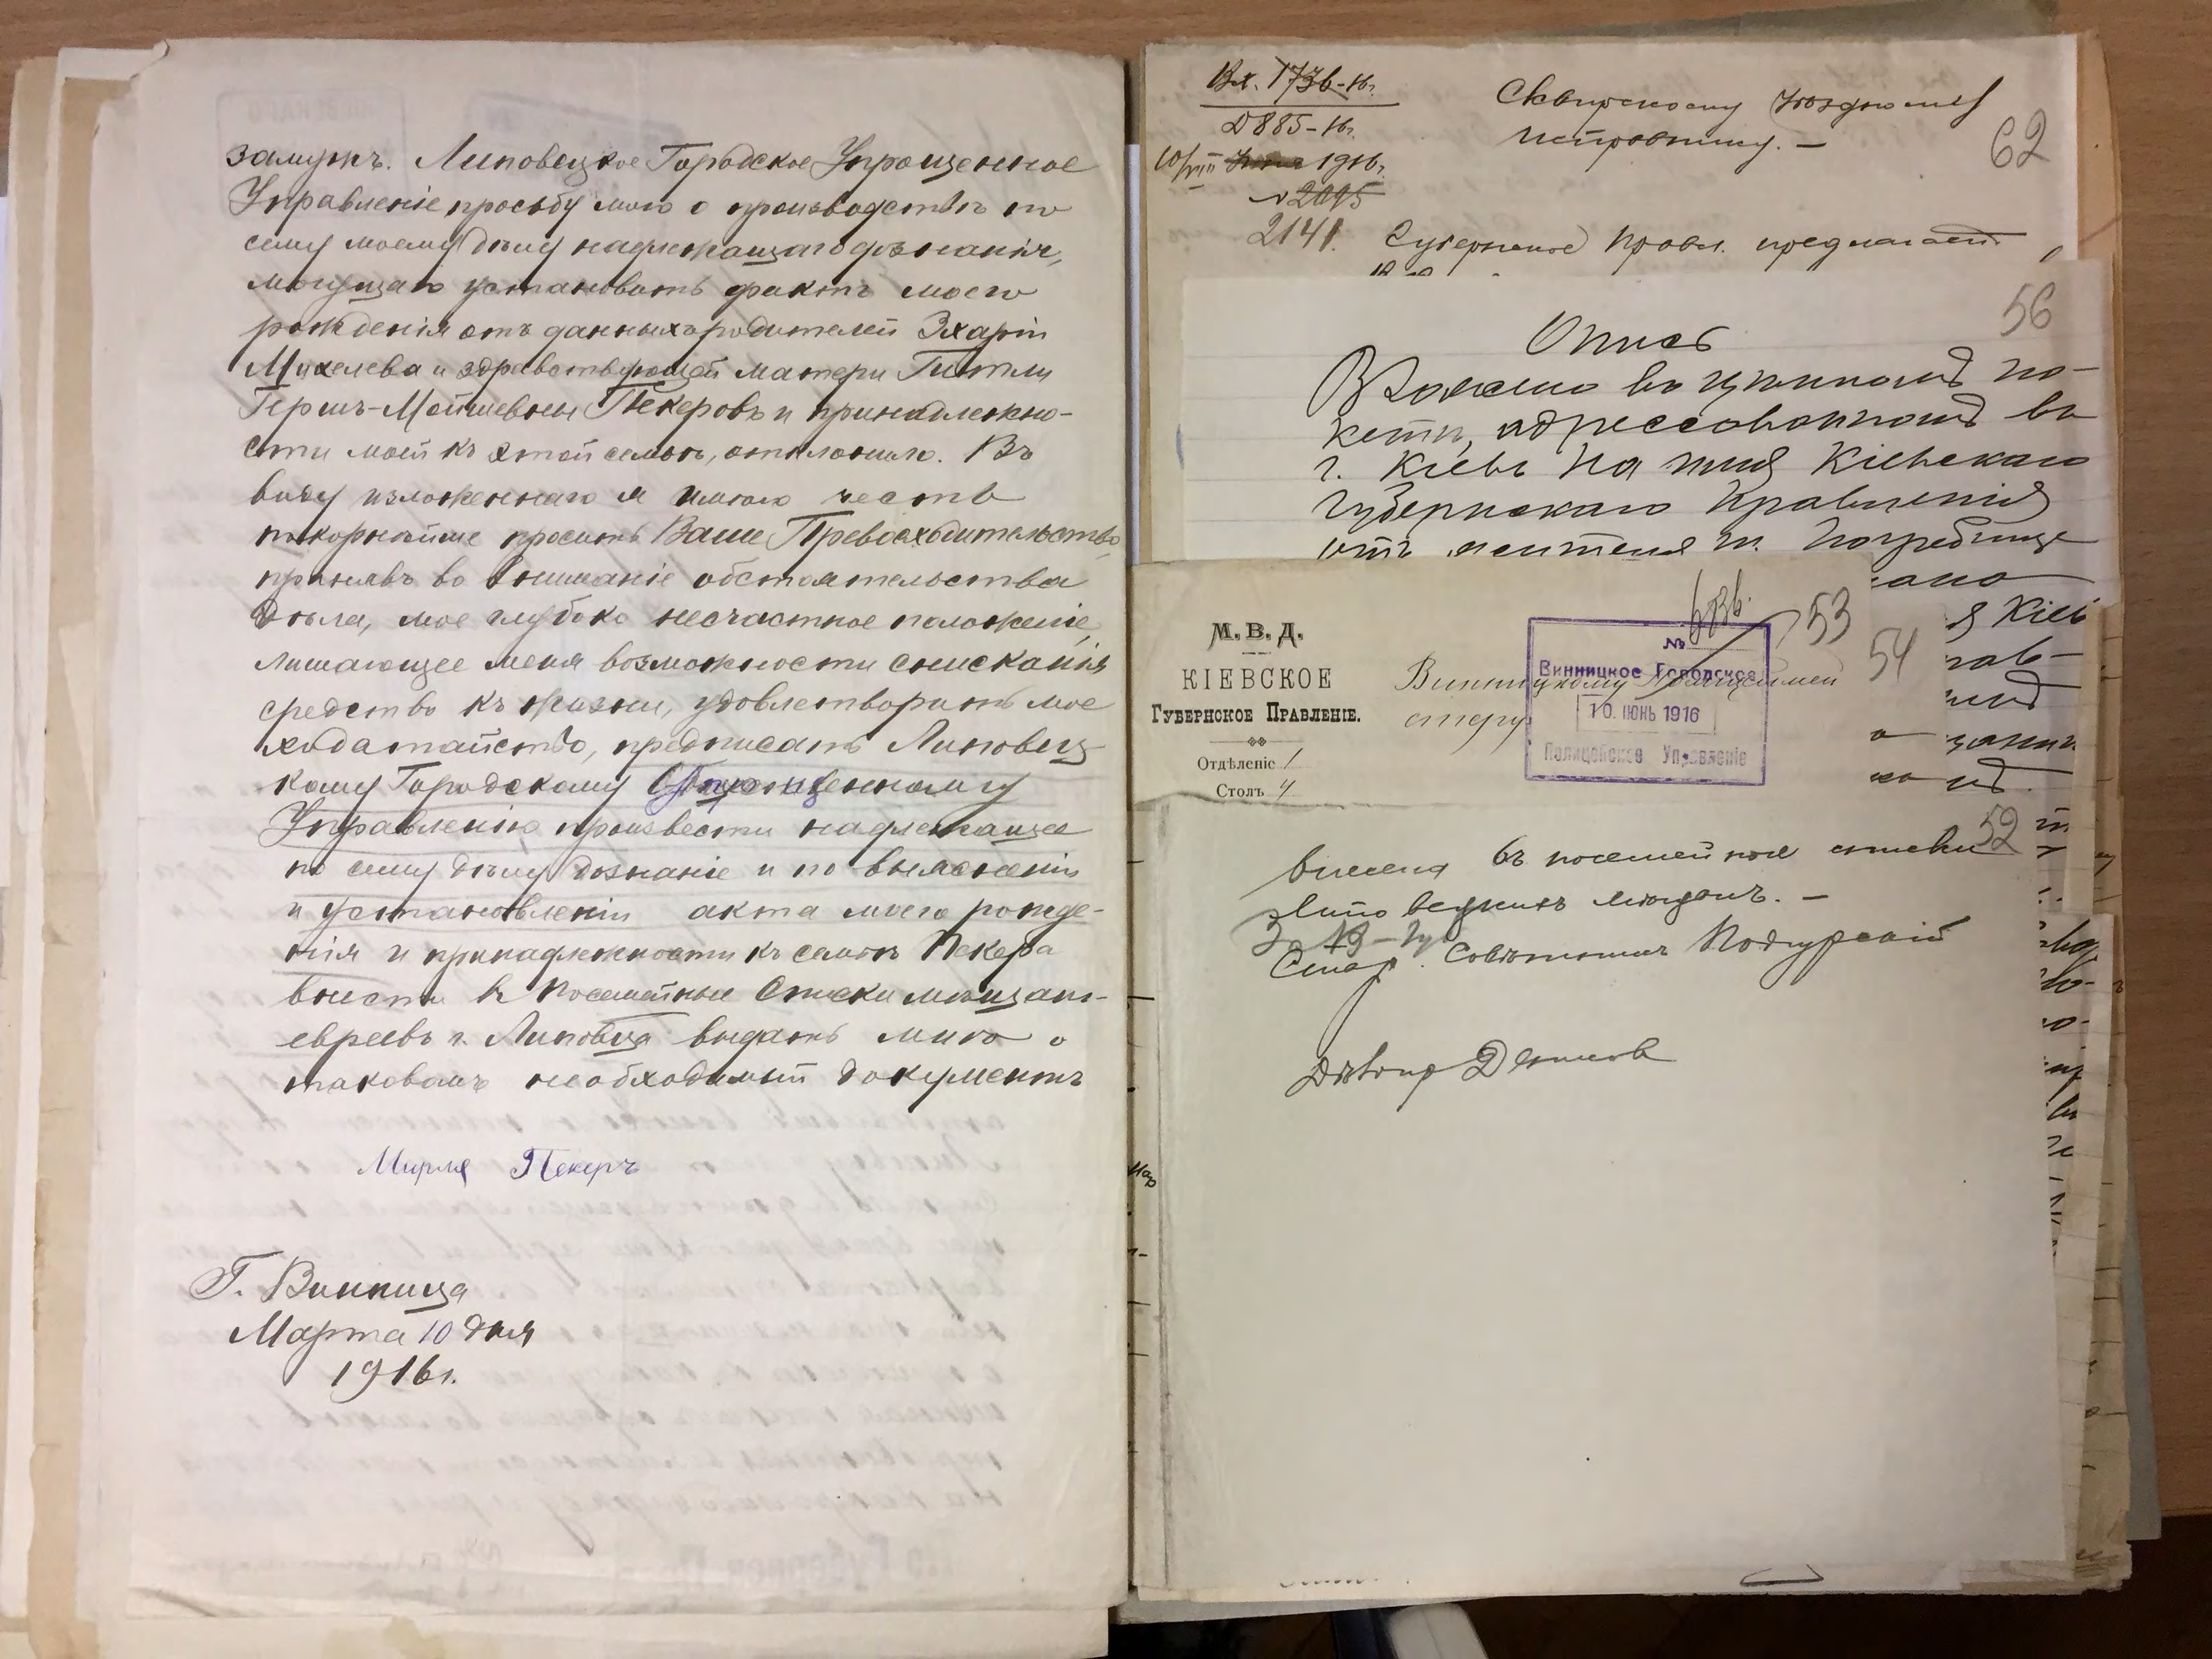 замужъ. Липовецкое Городское Упрощенное
Управленіе просьбу мою о производствѣ по
сему моему дѣлу надлежащаго дознанія,
могущаго установить фактъ моего
рожденія отъ данныхъ родителей Зхаріи
Михелева и здравствующей матери Гитли
Гершъ-Мошневны Пекеровъ и принадлежно-
сти моей къ этой семьѣ, отклонило. Въ
виду изложеннаго я имѣю честь
покорнѣйше просить Ваше Превосходительство,
принявъ во вниманіе обстоятельства
дѣла, мое глубоко несчастное положеніе,
лишающее меня возможности сниска́нія
средство къ жизни, удовлетворить мое
ходатайство, предписать Липовец-
кому Городскому Упрощенному
Управленію произвести надлежащее
по сему дѣлу дознаніе и по выясненіи
и установленіи акта моего рожде-
нія и принадлежности къ семьѣ Пекера
внести въ Посемейные Списки мѣщанъ-
евреевъ г. Липовца выдать мнѣ о
таковомъ необходимый документъ
Мирля Пекеръ
Г. Винница
Марта 10 дня
1916 г.
Вх. 1736-16 г.
Д 885-16 г.
10/VIII 1916 г.
№ 2095
2141.
Сквирскому Уѣздному
Исправнику. —
62
Губернское Правл. предлагаетъ
56
Опись
Вложено въ цѣнномъ па-
кетѣ, адрессованномъ въ
г. Кіевъ на имя Кіевскаго
Губернскаго Правленія
отъ жителя м. Погребище
М. В. Д.
КІЕВСКОЕ
ГУБЕРНСКОЕ ПРАВЛЕНІЕ.
Отдѣленіе 1
Столъ 4
Винницкому Полицеймей
стеру
№ 683б.
Винницкое Городское
10. ІЮНЬ 1916
Полицейское Управленіе
53
54
52
внесена въ посемейные списки
Липовецкихъ мѣщанъ. —
За Губ.
Стар. Совѣтникъ Подгурскій